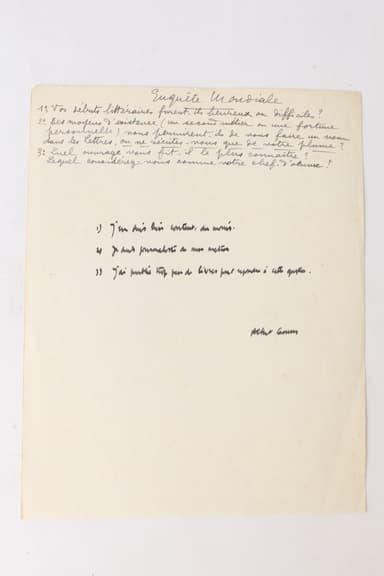 Enquête Mondiale
1º. Vos débuts littéraires furent-ils heureux ou difficiles ?
2º. Des moyens d'existence (un second métier ou une fortune
personnelle) vous permirent-ils de vous faire un nom
dans les lettres, ou ne vécûtes-vous que de votre plume ?
3º. Quel ouvrage vous fit-il le plus connaître ?
Lequel considérez-vous comme votre chef d'œuvre ?
1) J'en suis bien content du moins.
2) Je suis journaliste de mon métier
3) J'ai publié trop peu de livres pour répondre à cette question.
Albert